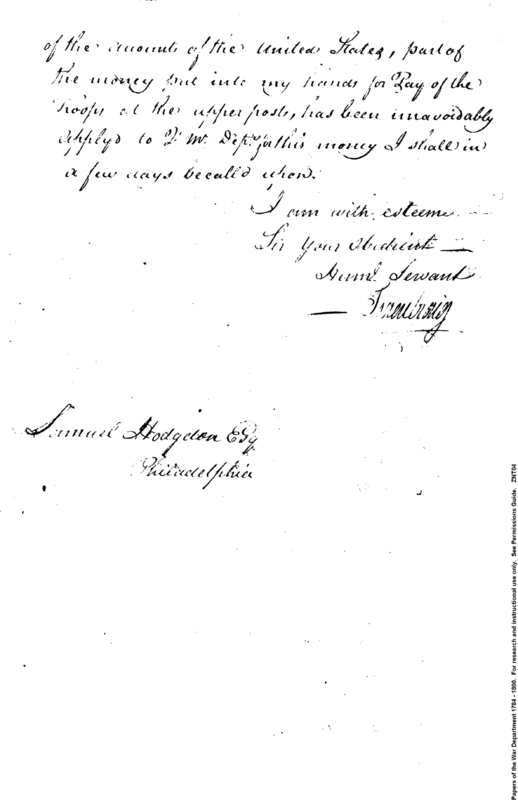 of the amount of the United States, part of
the money put into my hands for Pay of the
Troops at the upper posts, has been unavoidably
apply'd to Q. M. Dept. for this money I shall in
a few days be call'd upon.
I am with esteeme
Sir Your Obedient
Huml. Servant
Samuel Hodgdon Esq.
Philadelphia
Papers of the War Department 1784 - 1800. For research and instructional use only. See Permissions Guide. ZNT04